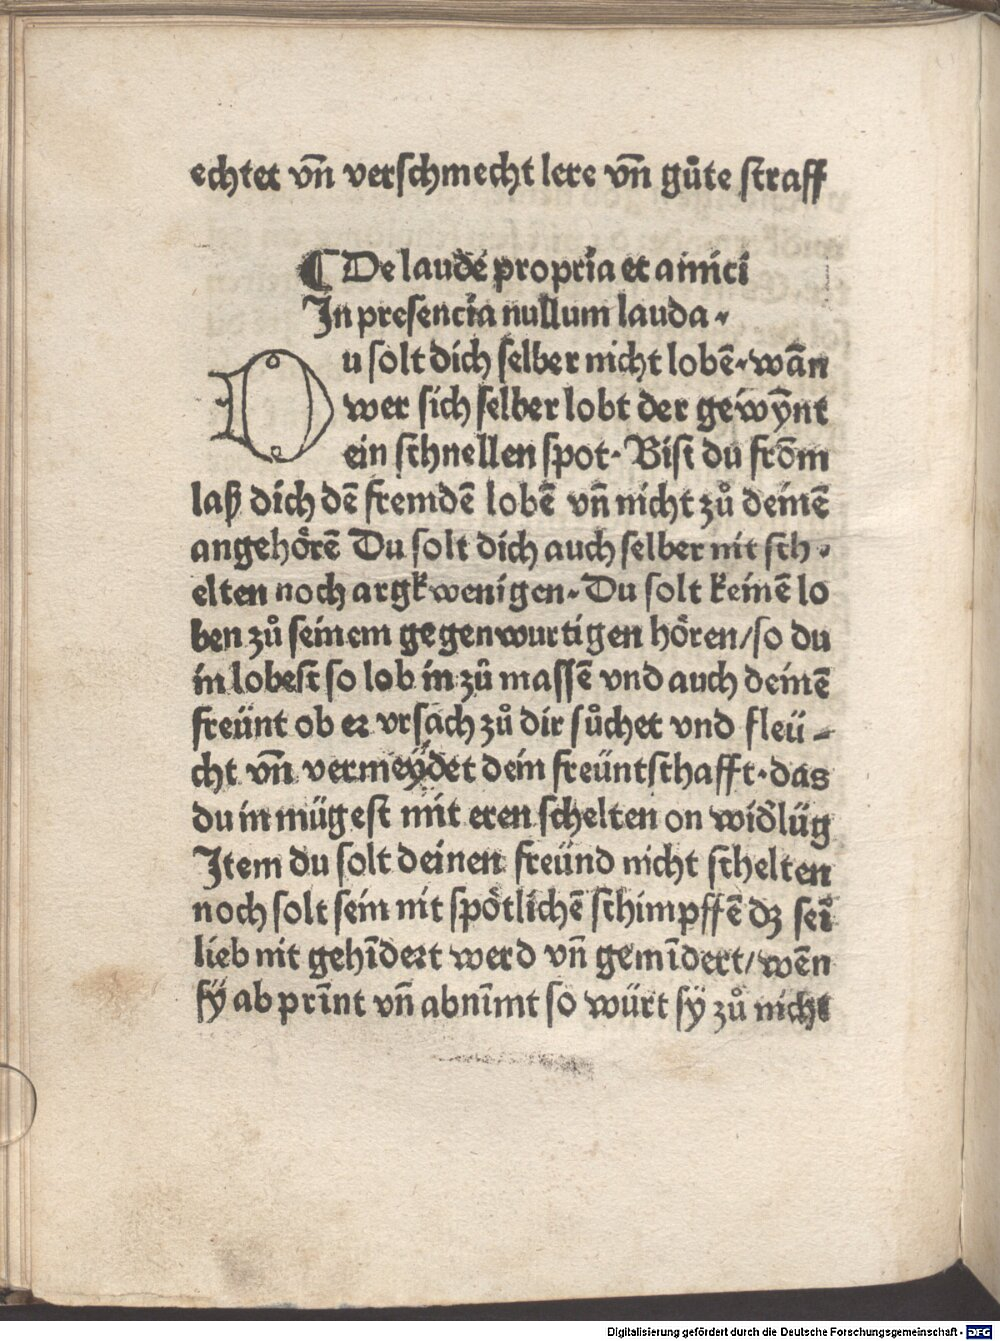 echtet vn̄ verschmecht lere vn̄ gůte straff
¶ De laude propria et amici
In presencia nullum lauda.
Du solt dich selber nicht lobē. wān
wer sich selber lobt der gewȳnt
ein schnellen spot. Bist du frōm
laß dich dē fremdē lobē vn̄ nicht zů deinē
angehoͤrē Du solt dich auch selber nit sch-
elten noch argkwenigen. Du solt keinē lo
ben zů seinem gegenwurtigen hoͤren/so du
in lobest so lob in zů massē vnd auch deinē
freünt ob er vrsach zů dir sůchet vnd fleü-
cht vn̄ vermeÿdet dein freüntschafft. das
du in mügest mit eren schelten on wid̛lüg
Item du solt deinen freünd nicht schelten
noch solt sein nit spoͤtlichē schimpffē dꝫ sei
lieb nit gehīdert werd vn̄ gemīdert/wēn
sÿ ab prīnt vn̄ abnīmt so würt sÿ zů nicht
Digitalisierung gefördert durch die Deutsche Forschungsgemeinschaft - DFG